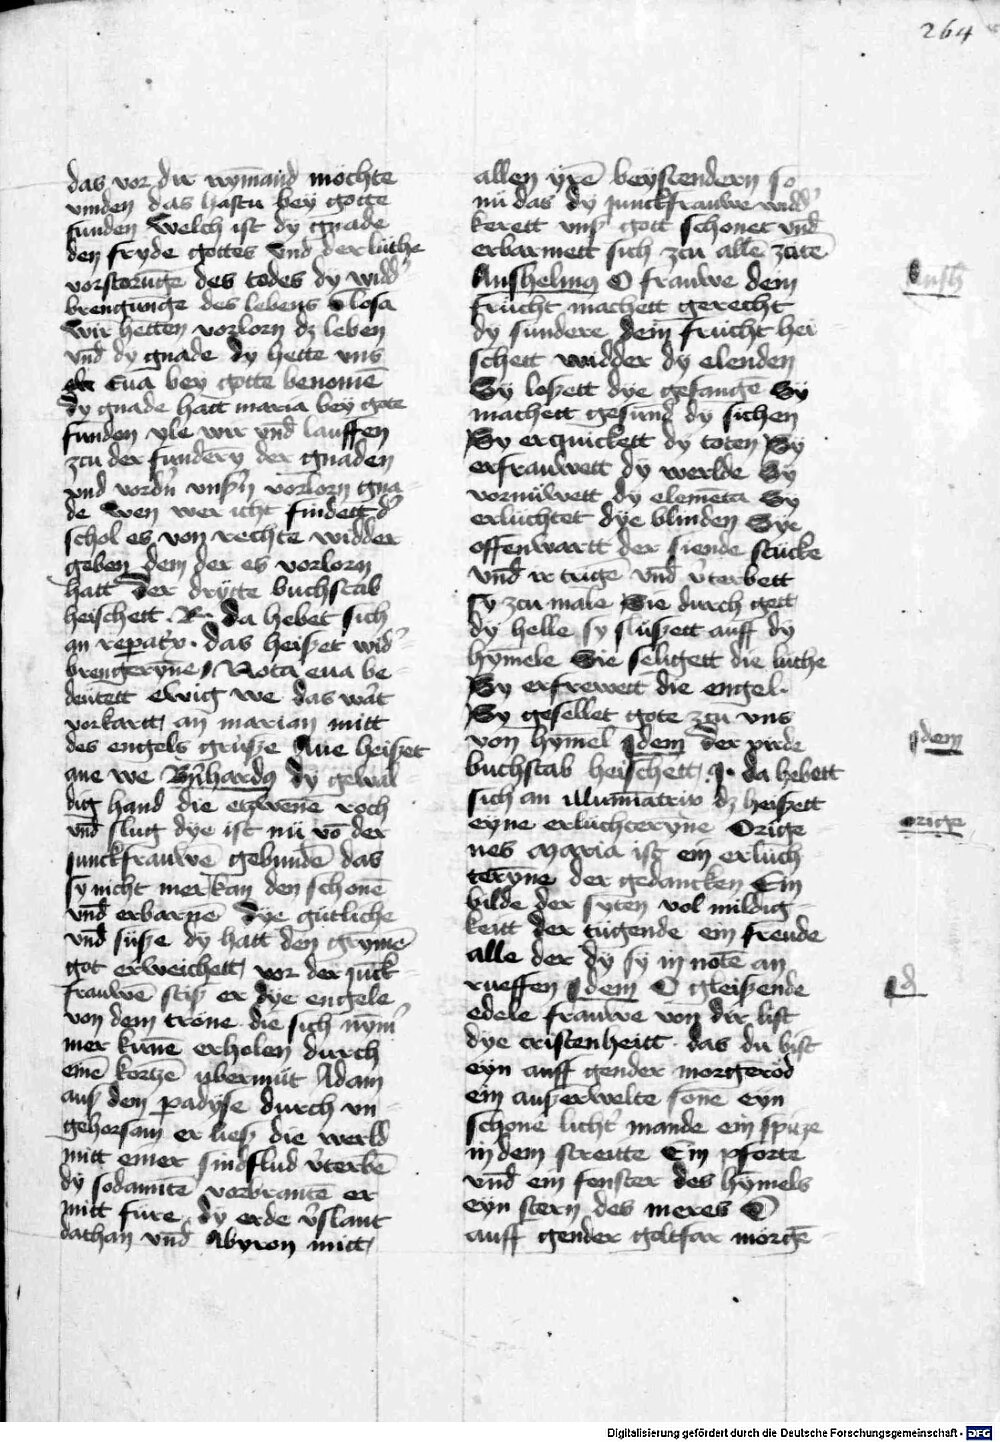 264
das vor dir nymand mochte
vinden das hastu bey gotte
funden Welch ist dy gnade
den fryde gottes vnd der lüthe
vorstorunge des todes dy widd'
brengunge des lebens Glosa
Wir hetten vorlorn dz leben
vnd dy gnade dy hette vns
Eua bey gotte benomē
dy gnade hatt maria bey gote
funden yle wir vnd lauffen
zcu der fundery der gnaden
vnd vordn̄ vnsn̄ vorlorn gna-
de Wen wer icht findett d'
schol es von rechte widder
geben dem der es vorlorn
hatt Der drytte buchstab
heischett . R . da hebet sich
an repat'x . das heiszet wid'-
brengerynne Nota eua be-
deütett ewig we das wart
vorkartt an marian mitt
des engels grüsze Aue heiszet
ane we Bn̄hardꝰ Dy gewal-
dig hand die etzwene roch
vnd slug dye ist nü vō der
junckfrauwē gebundē das
sy nicht mer kan den schonē
vnd erbarnē Dye gütliche
vnd süsze dy hatt den grymē
got erweichett vor der junck-
frauwē stisz er dye engele
von dem trone die sich nym'
mer kūnē erholen durch
einē kortzē vbermüt Adam
aus dem padyse durch vn-
gehorsam er liesz die werld
mitt einer sindflud v'terbē
dy sodamitē vorbrantē er
mitt füre dy erde v'slant
dathan vnd Abyron mitt
allen yrē beystendern so
nü das dy junckfrauwe widd'
kerett vns' gott schonet vnd
erbarmett sich zcu alle zcitē
Anshelmꝰ O frauwe dein
frücht machett gerecht
dy sundere dein frucht hei-
schett widder dy elenden
Sy loszett dye gefange Sy
machett gesund dy sichen
Sy erquickett dy toten Sy
erfrauwett dy werlde Sy
vornüwett dy elemēta Sy
erlüchtet dye blinden Sye
offenwartt der fiende stücke
vnd ir trige vnd v'terbett
sy zcu male Sie durch gett
dy helle sy slüszett auff dy
hymele Sie seligett die lüthe
Sy erfrewett die engel.
Sy gesellet gote zcu vns
von hymel Idem Der virde
buchstab heischett .I. da hebett
sich an illuminatrix dz heiszett
eyne erluchteryne Orige-
nes Maria ist ein erluch
teryne der gedancken Ein
bilde der syten vol mildig-
keitt der tügende ein freude
alle der dy sy in notē an
rueffen Idem O gleiszende
edele frauwe von dir list
dye cristenheitt das du bist
eyn auff gender morgeröd
ein auszerwelte sone eyn
schone licht' mande ein spitze
in dem streitte Ein pforte
vnd ein fenster des hymels
eyn stern des meres O
auff gender goltfar morgē-
Ansh
Idem
orige
Id
Digitalisierung gefördert durch die Deutsche Forschungsgemeinschaft - DFG